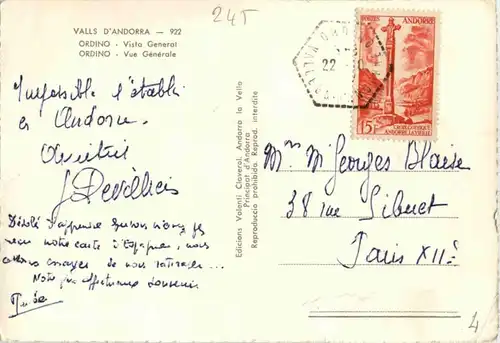 245
VALLS D'ANDORRA — 922
ORDINO - Vista General
ORDINO - Vue Générale
Impossible s'établir
en Andorre.
Amitiés
J Devilliers
Désolé d'apprendre que vous n'avez pas
reçu notre carte d'Espagne, nous
allons essayer de nous rattraper...
Notre plus affectueux souvenir
Edicions Valentí Claverol. Andorra la Vella
Principat d'Andorra
Reproducció prohibida. Reprod. interdite
22
POSTES
ANDORRE
15F
CROIX GOTHIQUE
ANDORRE LA VIEILLE
Mme M Georges Blaise
38 rue Sibuet
Paris XIIè
4